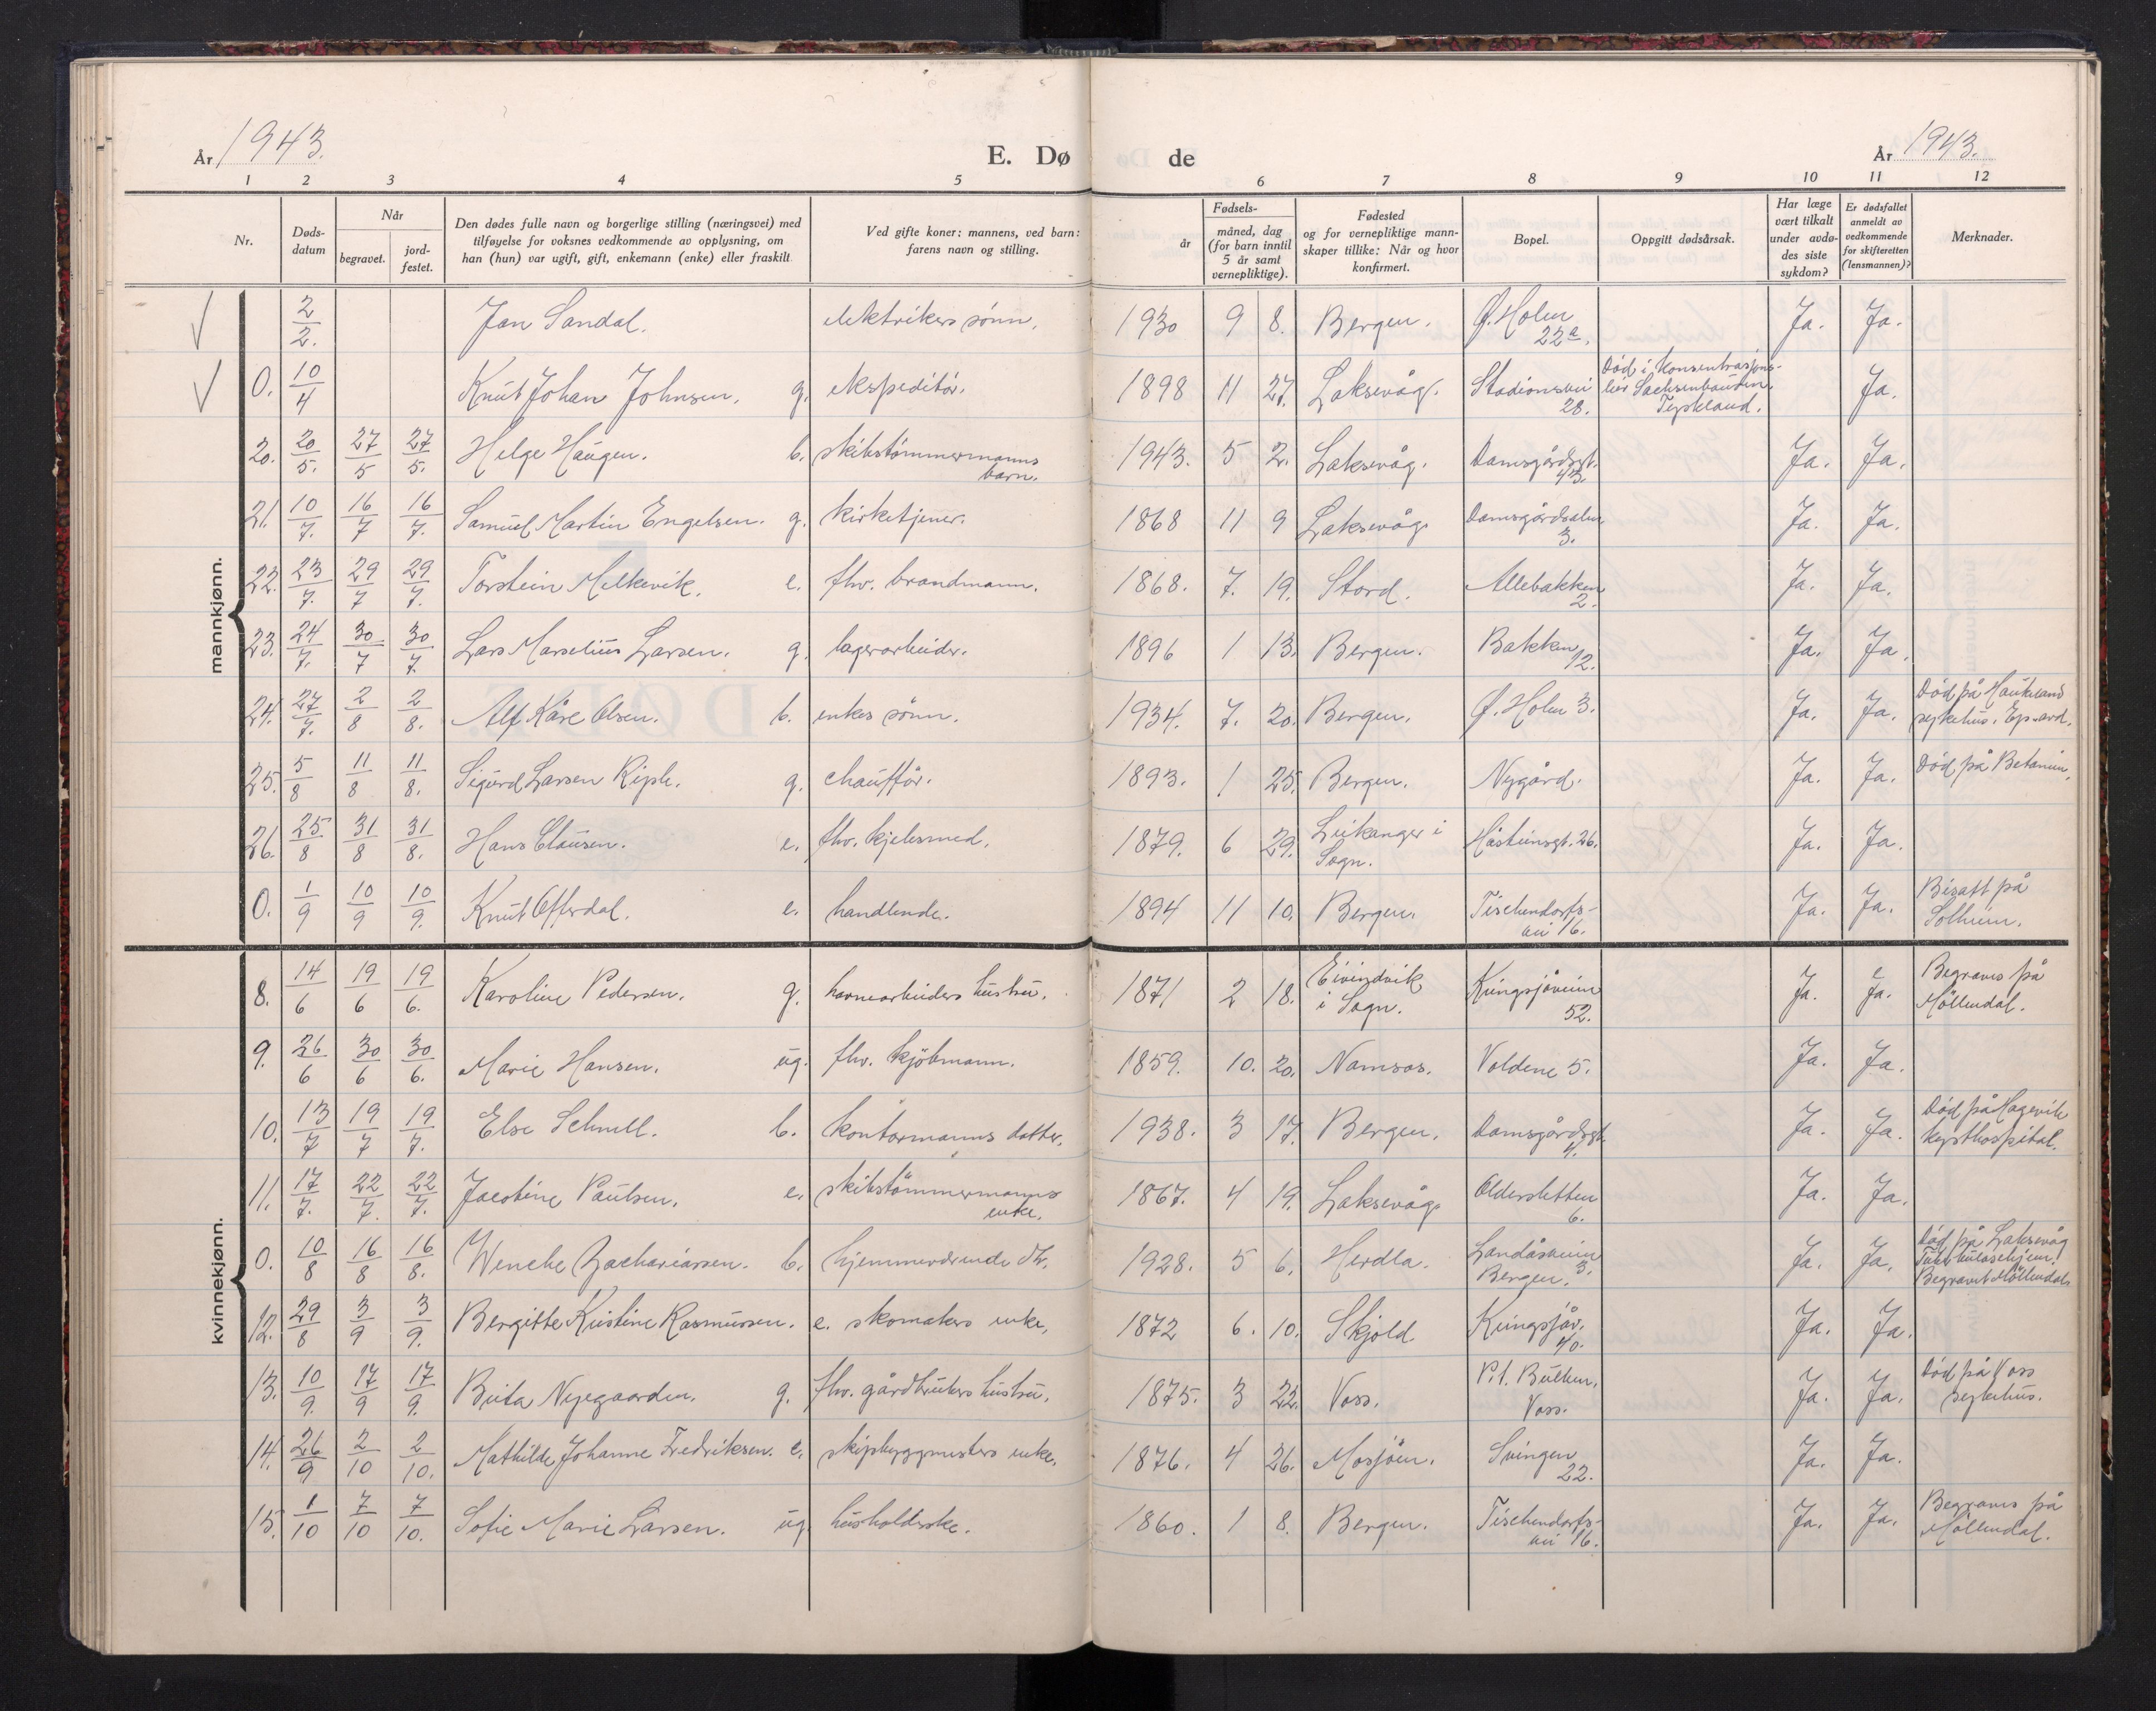 År 1943.
E. Dø de
År 1943.
1 2 3 4 5 6 7 8 9 10 11 12
Nr. | Dødsdatum | Når begravet. | jordfestet. | Den dødes fulle navn og borgerlige stilling (næringsvei) med tilføyelse for voksnes vedkommende av opplysning, om han (hun) var ugift, gift, enkemann (enke) eller fraskilt. | Ved gifte koner: mannens, ved barn: farens navn og stilling. | år | Fødsels- måned, dag (for barn inntil 5 år samt vernepliktige). | Fødested og for vernepliktige mannskaper tillike: Når og hvor konfirmert. | Bopel. | Oppgitt dødsårsak. | Har læge vært tilkalt under avdødes siste sykdom? | Er dødsfallet anmeldt av vedkommende for skifteretten (lensmannen)? | Merknader.
mannkjønn.
√ 2/2. Jan Sandal. elektrikers sønn. 1930 9 8. Bergen. Ø. Holen 22a. Ja. Ja.
√ 0. 10/4 Knut Johan Johnsen. g. ekspeditør. 1898 11 27. Laksevåg. Stadionsvei 28. Død i konsentrasjonsleir Sachsenhausen. Tyskland. Ja.
20. 20/5. 27/5 27/5. Helge Haugen. b. skibstømmermanns barn. 1943. 5 2. Laksevåg. Damsgårdsgt. 43. Ja. Ja.
21. 10/7. 16/7 16/7. Samuel Martin Engelsen. g. kirketjener. 1868 11 9 Laksevåg. Damsgårdsalm. 3. Ja. Ja.
22. 23/7. 29/7 29/7. Torstein Melkevik. e. fhv. brandmann. 1868. 7. 19. Stord. Allebakken 2. Ja. Ja.
23. 24/7. 30/7 30/7. Lars Marselius Larsen. g. lagerarbeider. 1896 1 13. Bergen. Bakken 12. Ja. Ja.
24. 27/7. 2/8 2/8. Alf Kåre Olsen. b. enkes sønn. 1934. 7. 20. Bergen. Ø. Holen 3. Ja. Ja. Død på Haukeland sykehus. Ep. avd.
25. 5/8 11/8 11/8. Sigurd Larsen Riple. g. chauffør. 1893. 1 25. Bergen. Nygård. Ja. Ja. Død på Betanien.
26. 25/8 31/8 31/8. Hans Clausen. e. fhv. kjelesmed. 1879. 6 29. Leikanger i Sogn. Håsteinsgt. 26. Ja. Ja.
0. 1/9 10/9 10/9. Knut Offerdal. e. handlende. 1894 11 10. Bergen. Tischendorfs- vei 16. Ja. Ja. Bisatt på Solheim.
kvinnekjønn.
8. 14/6 19/6 19/6. Karoline Pedersen. g. havnearbeiders hustru. 1871 2 18. Eivindvik i Sogn. Kringsjåveien 52. Ja. Ja. Begraves på Møllendal.
9. 26/6 30/6 30/6. Marie Hansen. ug. fhv. kjøbmann. 1859. 10. 20. Namsos. Voldene 5. Ja. Ja.
10. 13/7 19/7 19/7. Else Schnell. b. kontormanns datter. 1938. 3 17. Bergen. Damsgårdsgt. 4. Ja. Ja. Død på Hagevik kysthospital.
11. 17/7. 22/7. 22/7. Jacobine Paulsen. e. skibstømmermanns enke. 1867. 4 19. Laksevåg. Oldersletten 6. Ja. Ja.
0. 10/8 16/8 16/8. Wenche Zachariassen. b. hjemmeværende dtr. 1928. 5 6. Herdla. Landåsveien 3. Bergen. Ja. Ja. Død på Laksevåg Tuberkulosehjem. Begravet Møllendal.
12. 29/8 3/9 3/9. Bergitte Kristine Rasmussen. e. skomakers enke. 1872 6. 10. Skjold Kringsjåv. 40. Ja. Ja.
13. 10/9. 17/9 17/9. Brita Nyegaarden. g. fhv. gårdbrukers hustru. 1875. 3 22. Voss. P.t. Bulken. Voss. Ja. Ja. Død på Voss sykehus.
14. 26/9 2/10 2/10. Mathilde Johanne Fredriksen. e. skipsbyggmesters enke. 1876. 4 26. Mosjøen. Svingen 22. Ja. Ja.
15. 1/10 7/10 7/10. Sofie Marie Larsen. ug. husholderske. 1860. 1 8. Bergen. Tischendorfs- vei 16. Ja. Ja. Begraves på Møllendal.